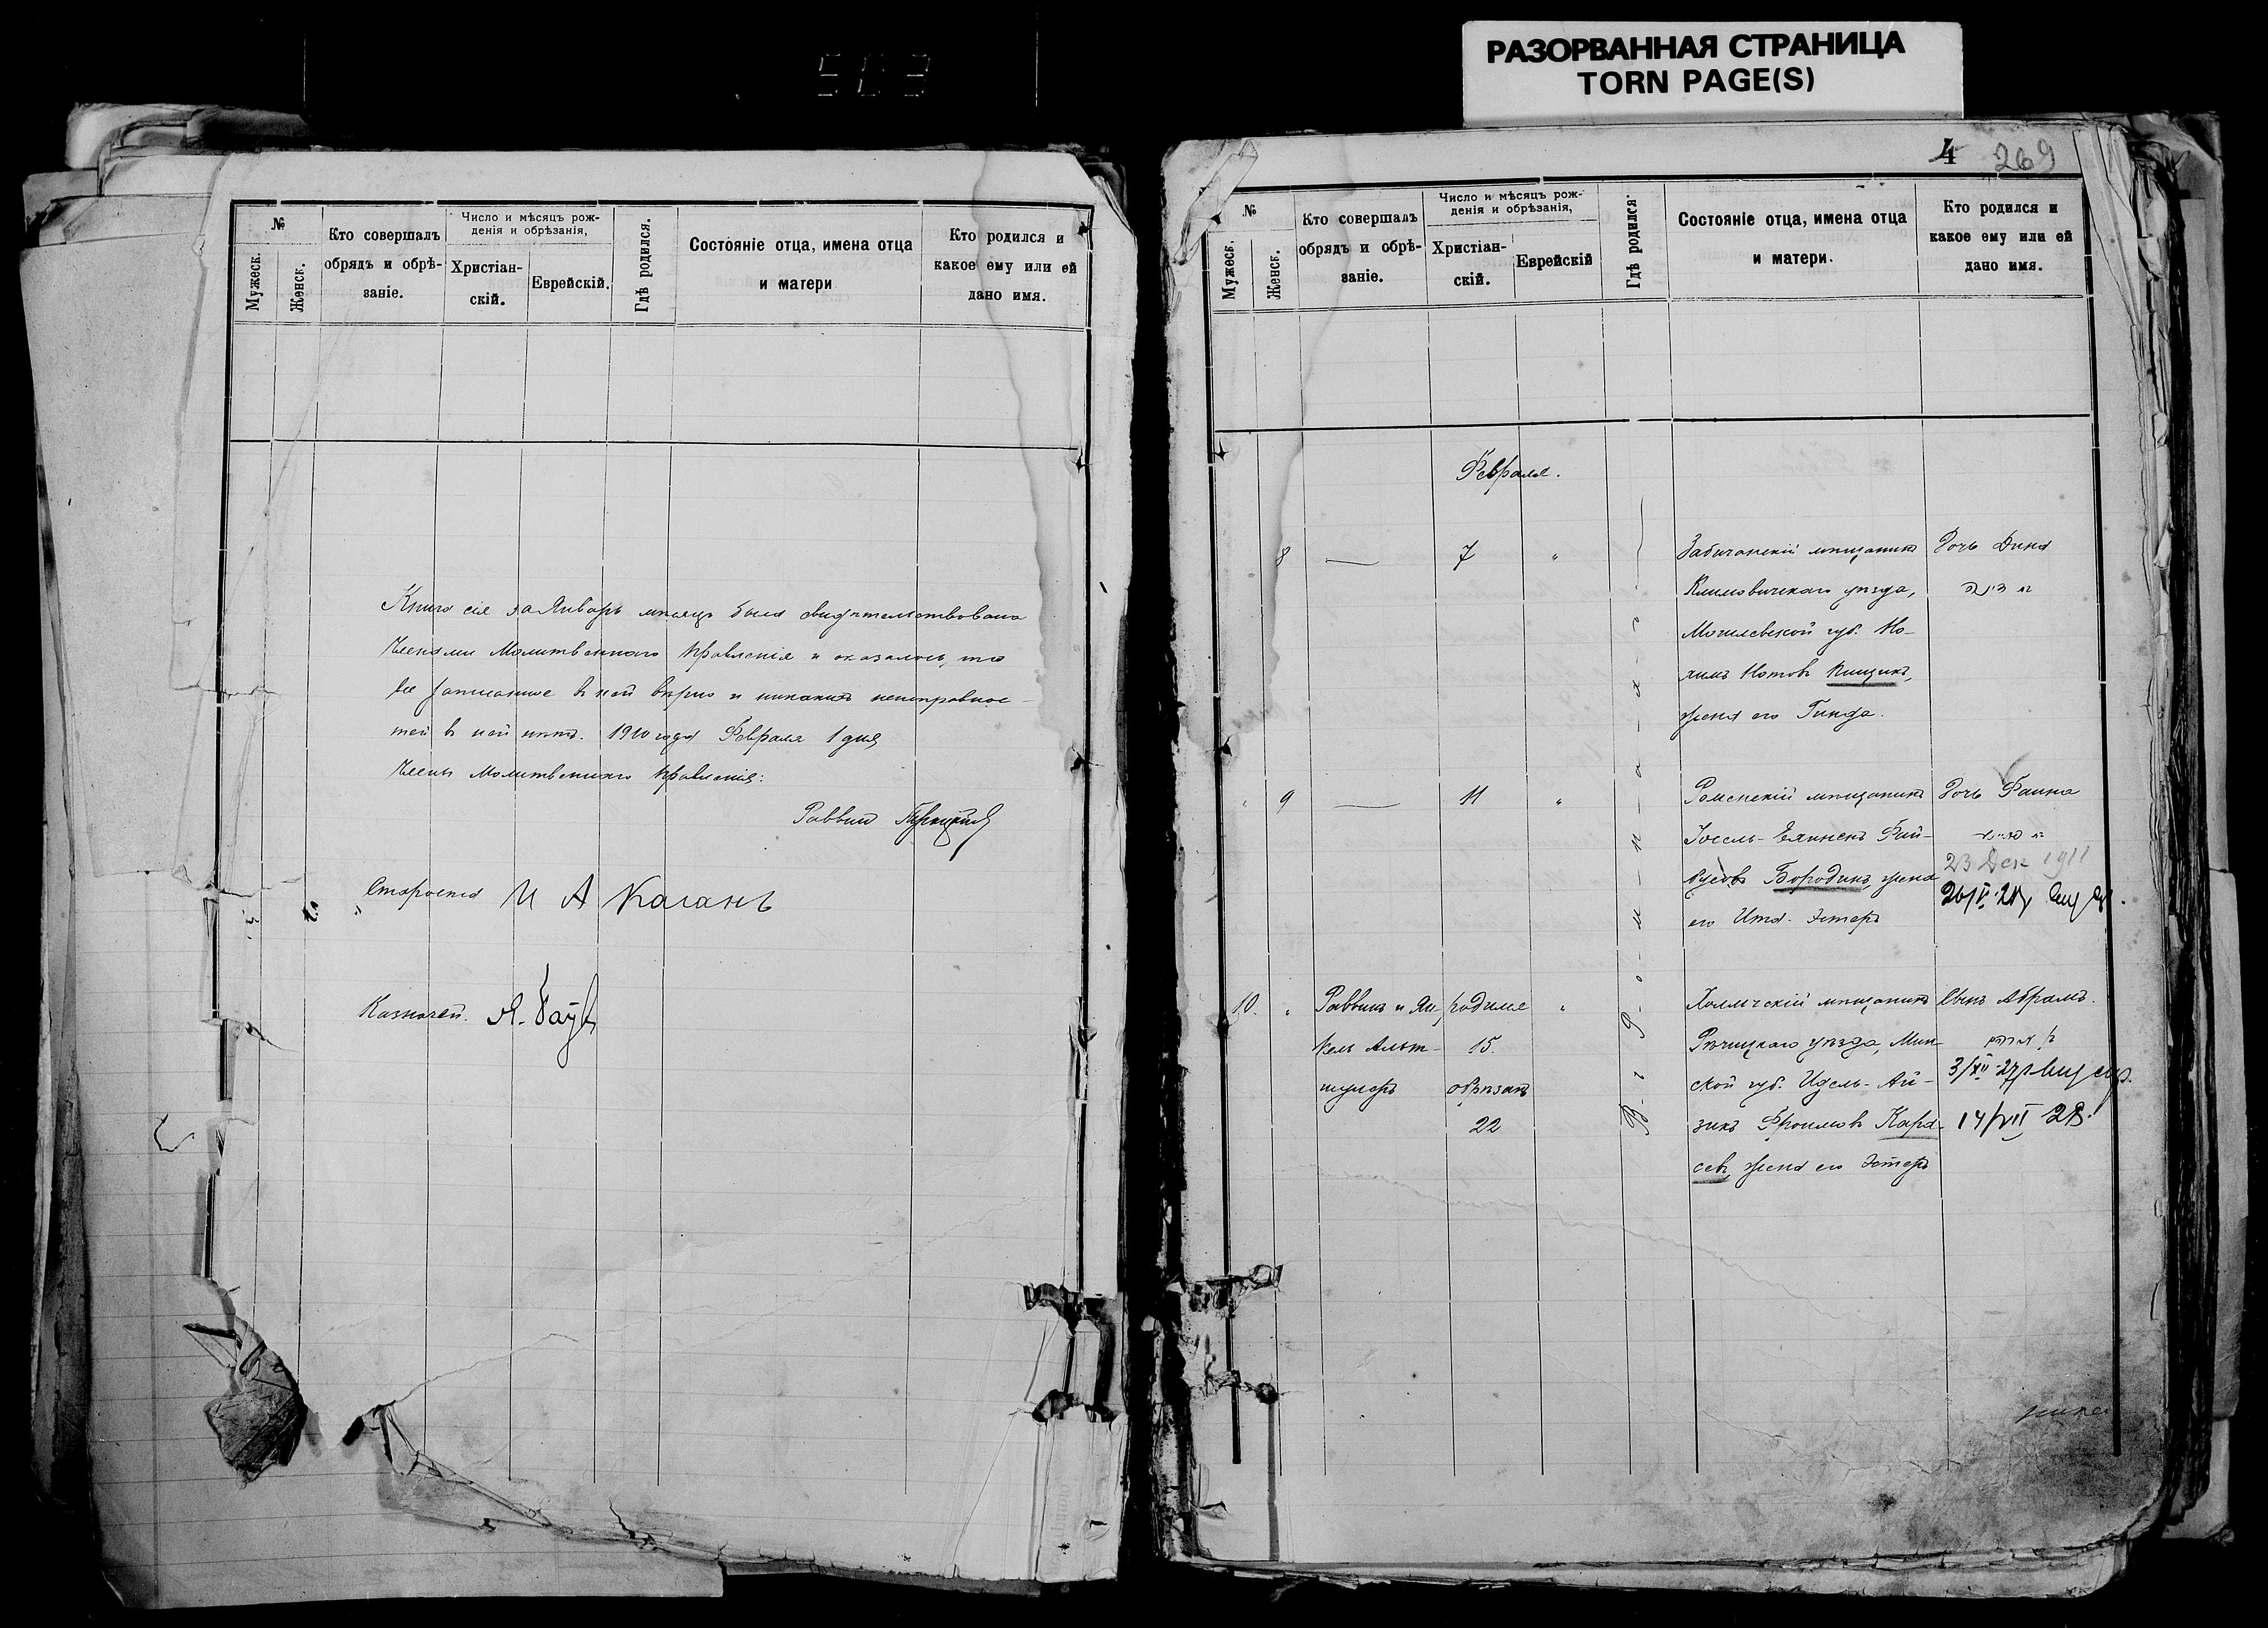 РАЗОРВАННАЯ СТРАНИЦА
TORN PAGE(S)
№
Мужеск.
Женск.
Кто совершалъ
обрядъ и обрѣ-
заніе.
Число и мѣсяцъ рож-
денія и обрѣзанія,
Христіан-
скій.
Еврейскій.
Гдѣ родился.
Состояніе отца, имена отца
и матери
Кто родился и
какое ему или ей
дано имя.
Книга сія за Январь мѣсяцъ была свидѣтельствована
Членами Молитвеннаго Правленія и оказалось, что
все записанное въ ней вѣрно и никакихъ неисправнос-
тей въ ней нѣтъ. 1910 года Февраля 1 дня
Члены Молитвеннаго Правленія:
Раввин
Староста И А Каганъ
Казначей. Я.
4 269
№
Мужеск.
Женск.
Кто совершалъ
обрядъ и обрѣ-
заніе.
Число и мѣсяцъ рож-
денія и обрѣзанія,
Христіан-
скій.
Еврейскій
Гдѣ родился.
Состояніе отца, имена отца
и матери.
Кто родился и
какое ему или ей
дано имя.
Февраля.
8 — 7 "
Забычанскій мѣщанинъ
Климовичскаго уѣзда,
Могилевской губ. Но-
химъ Нотовъ Кищикъ,
жена его Гинда.
Дочь Дина
דינה
" 9 — 11 "
Роменскій мѣщанинъ
Іосель-
Бородинъ, жена
его Ита-Эстеръ
Дочь Фаина
23 Дек 1911
10. "
Раввинъ и Ян-
кель Альт-
шулеръ
родился
15.
обрѣзанъ
22
"
Холмечскій мѣщанинъ
Рѣчицкаго уѣзда, Мин-
ской губ. Идель-Ай-
зикъ Фроимовъ Кара-
севъ, жена его Эстеръ
Сынъ Абрамъ.
14/VII 28.